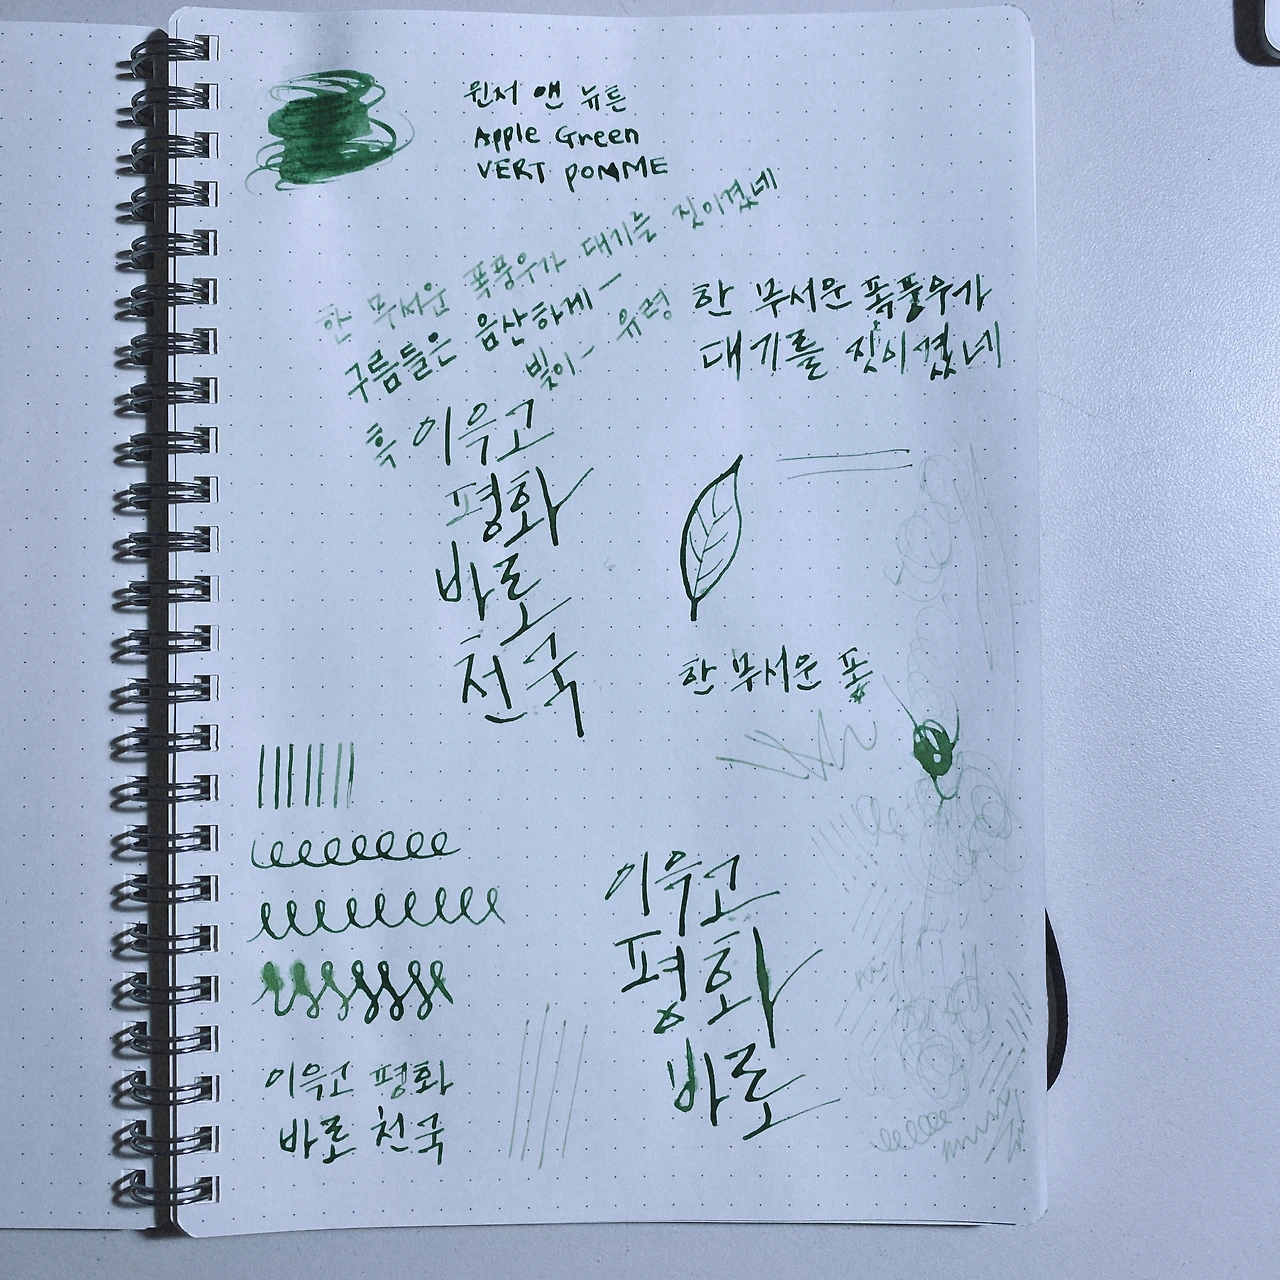 윈저 앤 뉴튼
Apple Green
VERT POMME
한 무서운 폭풍우가 대기를 짓이겼네
구름들은 음산하게-
빛이- 유령
한 무서운 폭풍우가
대기를 짓이겼네
흑
이윽고
평화
바로
천국
한 무서운 포
이윽고
평화
바로
이윽고 평화
바로 천국